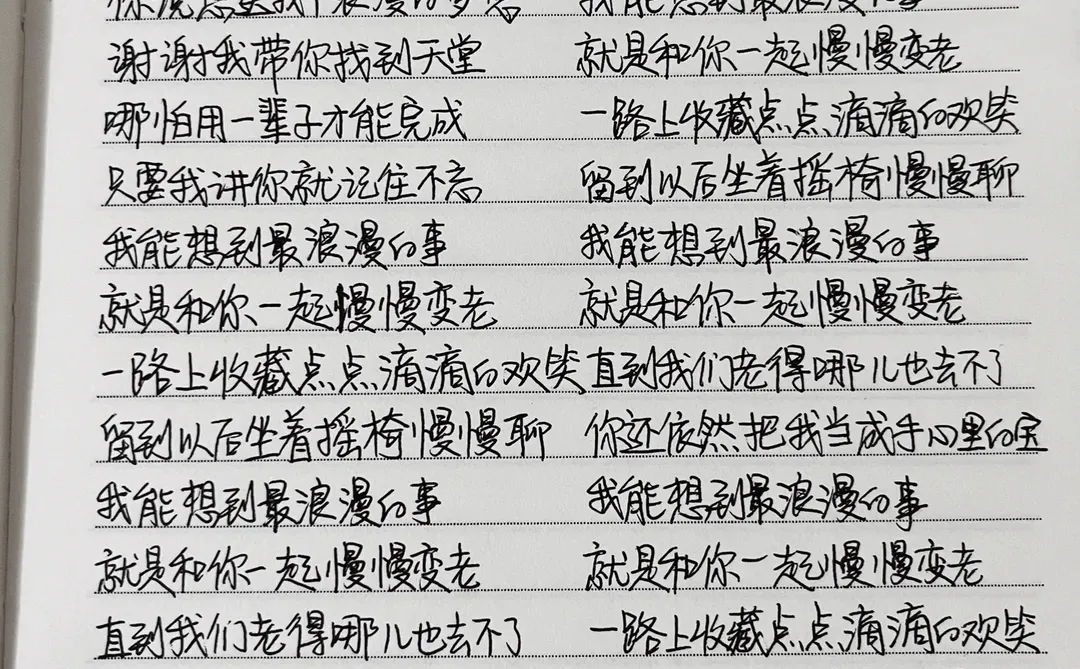 你说想送我个浪漫的梦想
谢谢我带你找到天堂
哪怕用一辈子才能完成
只要我讲你就记住不忘
我能想到最浪漫的事
就是和你一起慢慢变老
一路上收藏点点滴滴的欢笑
留到以后坐着摇椅慢慢聊
我能想到最浪漫的事
就是和你一起慢慢变老
直到我们老得哪儿也去不了
我能想到最浪漫的事
就是和你一起慢慢变老
一路上收藏点点滴滴的欢笑
留到以后坐着摇椅慢慢聊
我能想到最浪漫的事
就是和你一起慢慢变老
直到我们老得哪儿也去不了
你还依然把我当成手心里的宝
我能想到最浪漫的事
就是和你一起慢慢变老
一路上收藏点点滴滴的欢笑